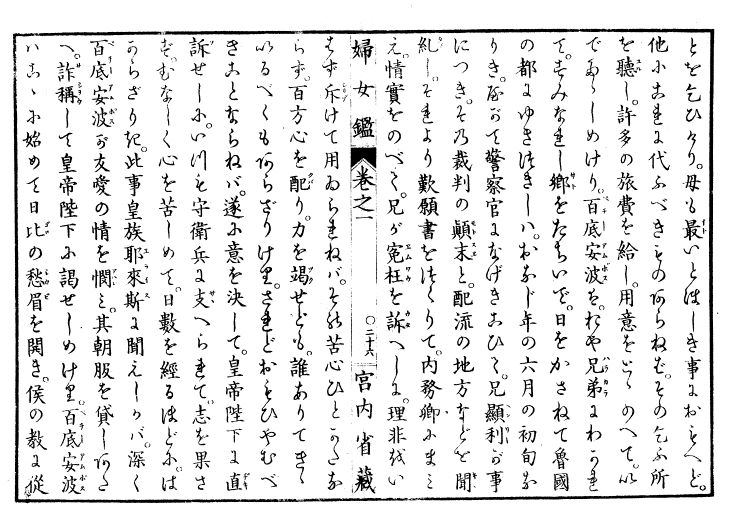 とを乞ひけり。母も最いとほしき事におもへど。
他にこれに代ふべきものあらねば。その乞ふ所
を聽し。許多の旅費を給し。用意をとゝのへて。い
でたゝしめけり。百底安波を。おや兄弟にわかれ
て。すみなれし郷をたちいで。日をかさねて魯國
の都にゆきつきしハ。おなじ年の六月の初旬な
りき。やがて警察官になげきこひて。兄顯利が事
につき。その裁判の顛末と。配流の地方などを聞
糺し。それより歎願書をつくりて。内務卿にまミ
え。情實をのべて。兄が冤枉を訴へしに。理非をい
婦女鑑 卷之一 〇二十六 宮内省藏
はず斥けて用ゐられねバ。その苦心ひとかたな
らず。百方心を配り。力を竭せども。誰ありてきゝ
いるべくもあらざりけり。されどおもひやむべ
きことならねバ。遂に意を決して。皇帝陛下に直
訴せしに。いつも守衛兵に支へられて。志を果さ
ず。むなしく心を苦しめて。日數を經るほどに。は
からざりき。此事皇族耶來斯に聞えしかバ。深く
百底安波が友愛の情を憫ミ。其朝服を貸しあた
へ。詐稱して皇帝陛下に謁せしめけり。百底安波
ハこゝに始めて日比の愁眉を開き。侯の教に從